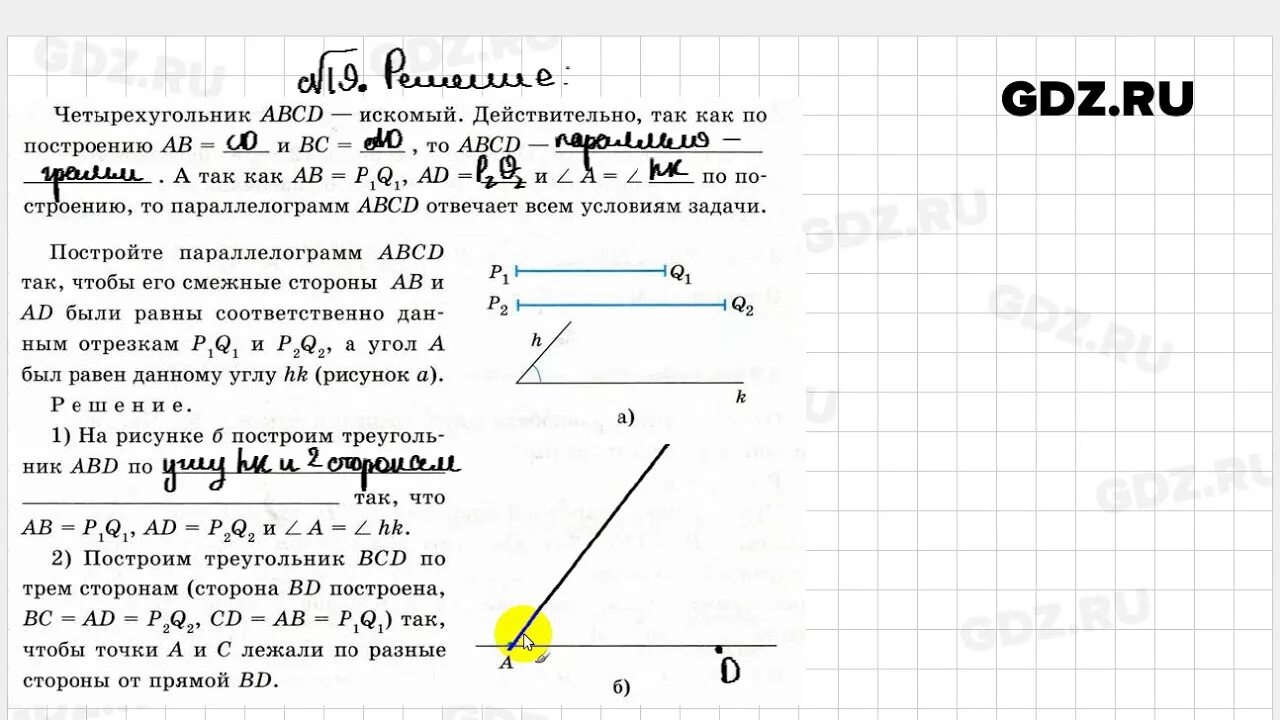 №19. Решение:
GDZ.RU
Четырехугольник ABCD — искомый. Действительно, так как по
построению AB = CD и BC = AD, то ABCD — параллело –
грамм. А так как AB = P₁Q₁, AD = P₂Q₂ и ∠ A = ∠ hk по по-
строению, то параллелограмм ABCD отвечает всем условиям задачи.
Постройте параллелограмм ABCD
так, чтобы его смежные стороны AB и
AD были равны соответственно дан-
ным отрезкам P₁Q₁ и P₂Q₂, а угол A
был равен данному углу hk (рисунок а).
Решение.
1) На рисунке б построим треуголь-
ник ABD по углу hk и 2 сторонам
так, что
AB = P₁Q₁, AD = P₂Q₂ и ∠ A = ∠ hk.
2) Построим треугольник BCD по
трем сторонам (сторона BD построена,
BC = AD = P₂Q₂, CD = AB = P₁Q₁) так,
чтобы точки A и C лежали по разные
стороны от прямой BD.
P₁ Q₁
P₂ Q₂
h
k
а)
A D
б)
GDZ.RU
GDZ.RU
GDZ.RU
GDZ.RU
GDZ.RU
GDZ.RU